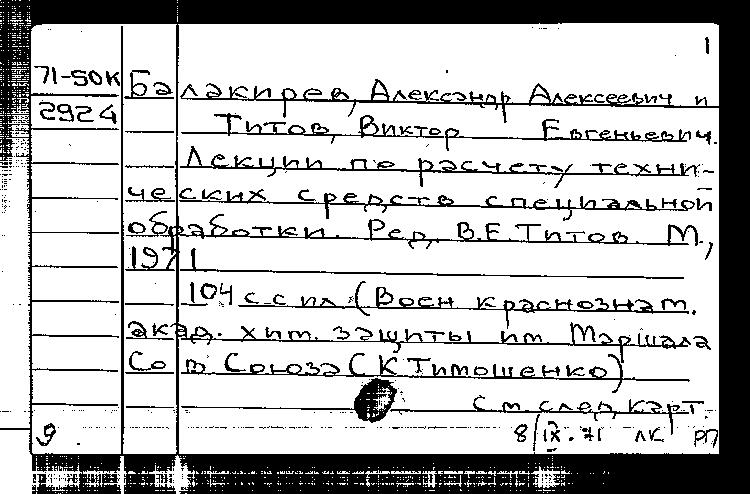 1
71-50К Балакирев, Александр Алексеевич и
2924 Титов, Виктор Евгеньевич.
Лекции по расчету техни-
ческих средств специальной
обработки. Ред. В.Е.Титов. М.,
1971
104 с с ил (Воен краснознам.
акад. хим. защиты им. Маршала
Сов Союза С К Тимошенко)
См. след. карт.
9 8/IX-71 ЛК РП